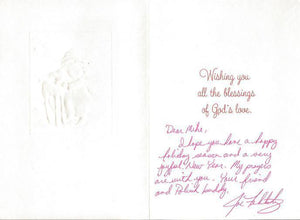 Wishing you
all the blessings
of God's love.
Dear Mike,
I hope you have a happy
holiday season and a very
joyful New Year. My prayers
are with you. Your friend
and
Joe